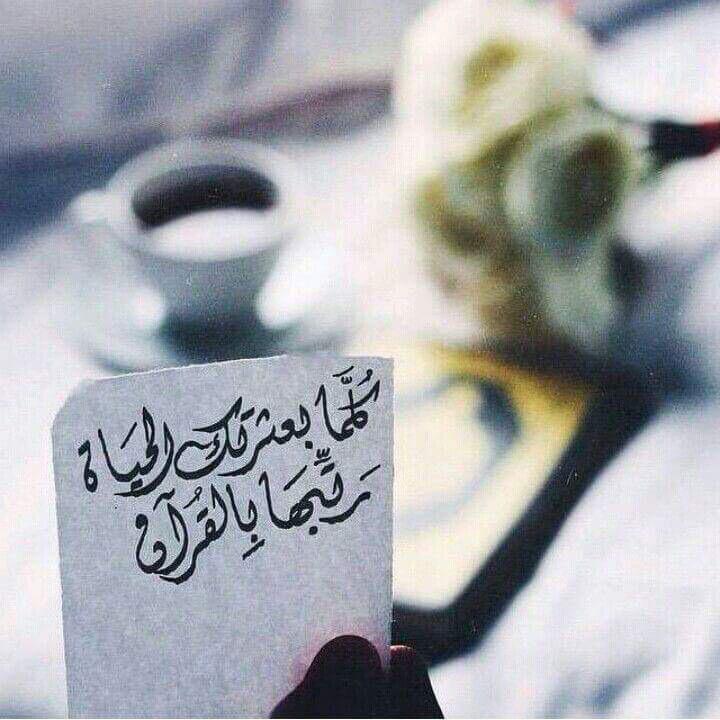 كُلَّمَا بعثرتك الحيَاة
رَتِّبهَا بِالقُرآن